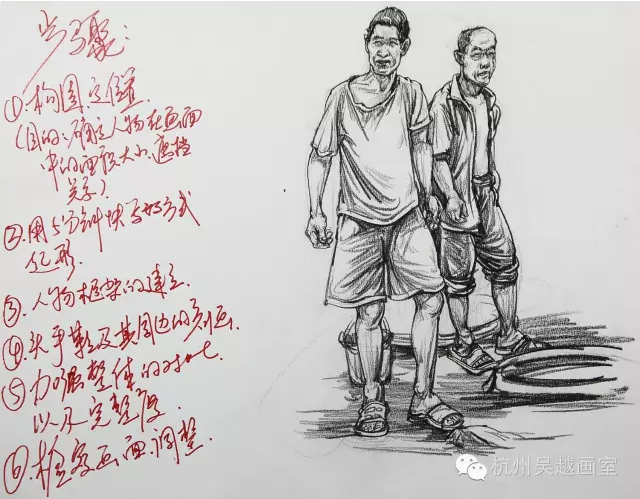 步骤:
①.构图.定位置.
(目的:确立人物在画面
中的面积大小.遮挡
关系)
②.用5分钟快写的方式
起形.
③.人物框架的建立.
④.头手鞋及其周边的刻画.
⑤加强整体的对比
以及完整度.
⑥.检查画面.调整.
杭州吴越画室